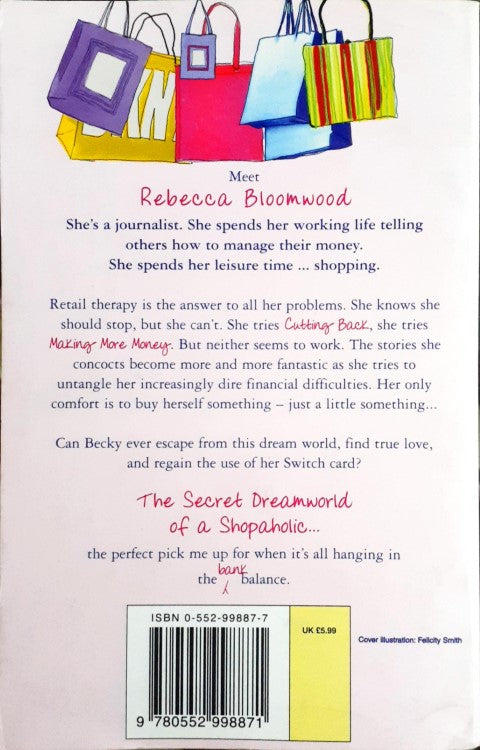 DKN
Meet
Rebecca Bloomwood
She's a journalist. She spends her working life telling
others how to manage their money.
She spends her leisure time ... shopping.
Retail therapy is the answer to all her problems. She knows she
should stop, but she can't. She tries Cutting Back, she tries
Making More Money. But neither seems to work. The stories she
concocts become more and more fantastic as she tries to
untangle her increasingly dire financial difficulties. Her only
comfort is to buy herself something – just a little something...
Can Becky ever escape from this dream world, find true love,
and regain the use of her Switch card?
The Secret Dreamworld
of a Shopaholic...
the perfect pick me up for when it's all hanging in
the bank balance.
ISBN 0-552-99887-7
UK £5.99
Cover illustration: Felicity Smith
9 780552 998871